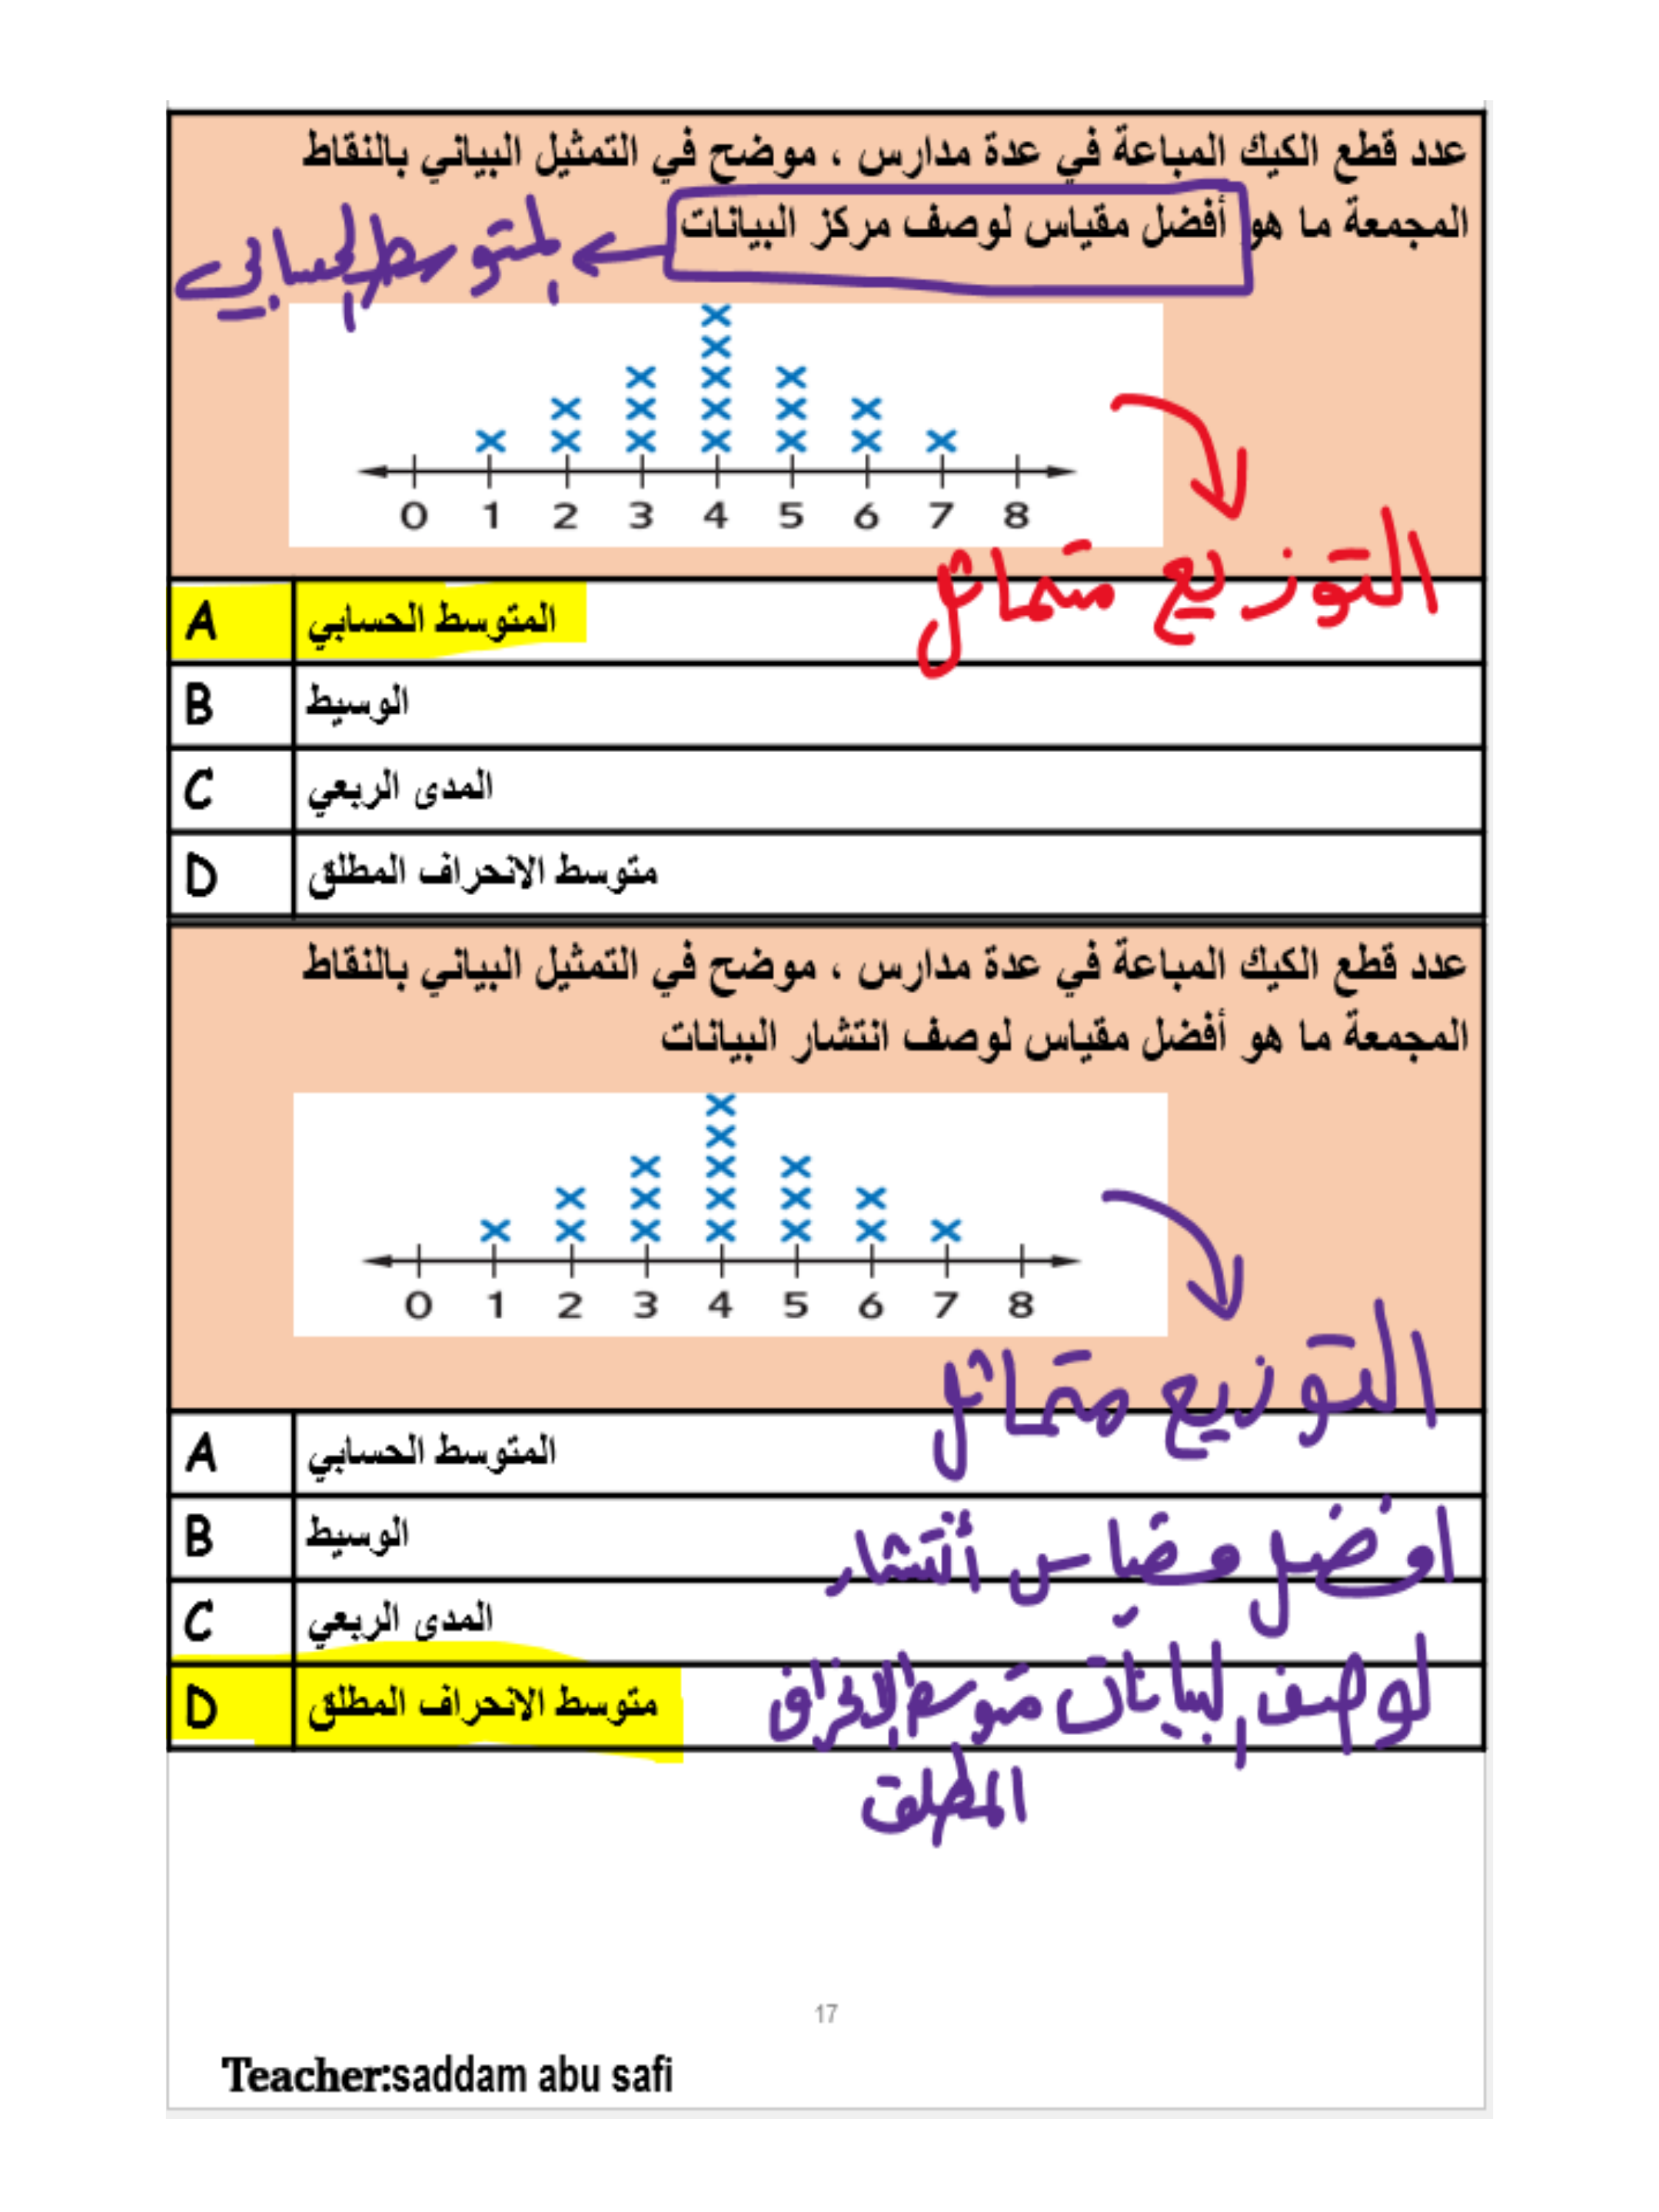 عدد قطع الكيك المباعة في عدة مدارس ، موضح في التمثيل البياني بالنقاط
المجمعة ما هو أفضل مقياس لوصف مركز البيانات
المتوسط الحسابي
0 1 2 3 4 5 6 7 8
التوزيع متماثل
A المتوسط الحسابي
B الوسيط
C المدى الربعي
D متوسط الانحراف المطلق
عدد قطع الكيك المباعة في عدة مدارس ، موضح في التمثيل البياني بالنقاط
المجمعة ما هو أفضل مقياس لوصف انتشار البيانات
0 1 2 3 4 5 6 7 8
التوزيع متماثل
A المتوسط الحسابي
B الوسيط
افضل مقياس أنتشار
C المدى الربعي
D متوسط الانحراف المطلق
لوصف البيانات متوسط الانحراف
المطلق
17
Teacher:saddam abu safi